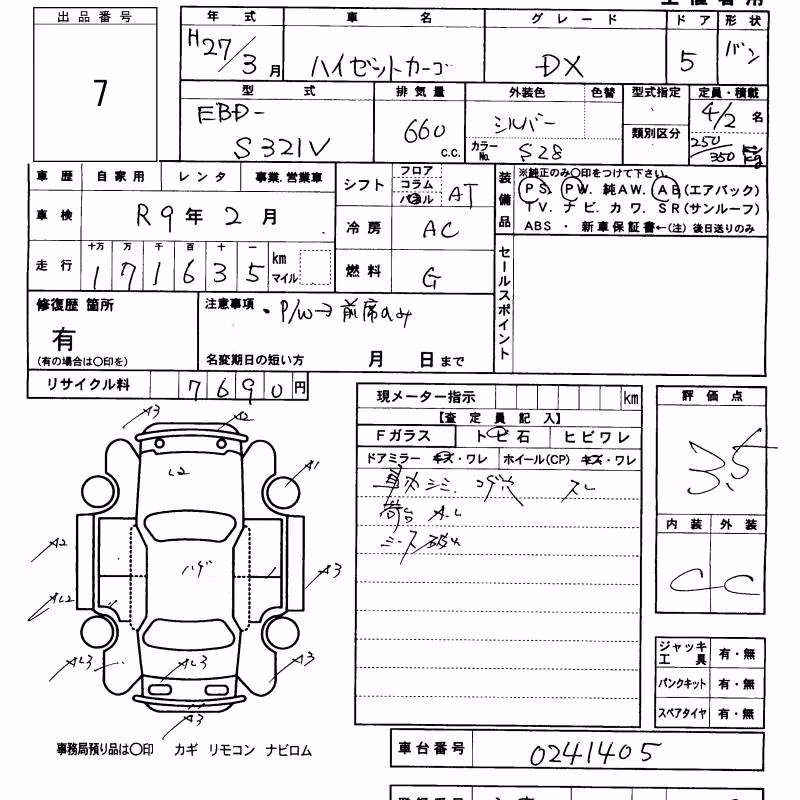 出品番号
7
年式 車名 グレード ドア 形状
H27/3月 ハイゼットカーゴ DX 5 バン
型式 排気量 外装色 色替 型式指定 定員・積載
EBD-S321V 660 c.c. シルバー 類別区分 4/2名
カラーNo. S28 250/350
車歴 自家用 レンタ 事業.営業車
車検 R9年2月
走行 十万 万 千 百 十 一 km マイル
171635
シフト フロア コラム パネル AT
冷房 AC
燃料 G
装備品 ※純正のみ○印をつけて下さい。
PS. PW. 純AW. AB(エアバック)
TV. ナビ. カワ. SR(サンルーフ)
ABS ・ 新車保証書←(注)後日送りのみ
セールスポイント
修復歴 箇所
有
(有の場合は○印を)
注意事項 ・P/W→前席のみ
名変期日の短い方 月 日まで
リサイクル料 7690円
現メーター指示 km
【査定員記入】
Fガラス トビ石 ヒビワレ
ドアミラー キズ・ワレ ホイール(CP) キズ・ワレ
車内シミ. コゲ穴 スレ
荷台 A.L
評価点
3.5
内装 外装
C C
A3 A2
L2 A1
A2
ハゲ
A3
AL2
AL3 AL3 A3
A3
ジャッキ工具 有・無
パンクキット 有・無
スペアタイヤ 有・無
事務局預り品は○印 カギ リモコン ナビロム
車台番号 0241405